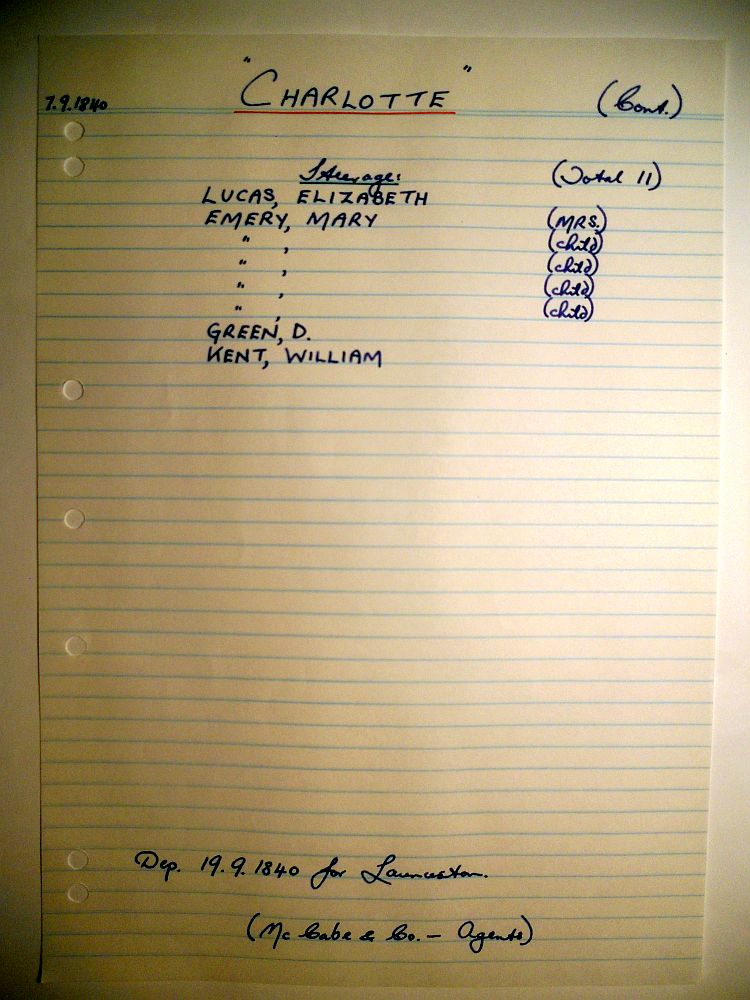 7.9.1840 "CHARLOTTE" (Cont.)
Steerage: (Total 11)
LUCAS, ELIZABETH
EMERY, MARY (MRS.)
" , (child)
" , (child)
" , (child)
" , (child)
GREEN, D.
KENT, WILLIAM
Dep. 19.9.1840 for Launceston.
(McCabe & Co. – Agents)